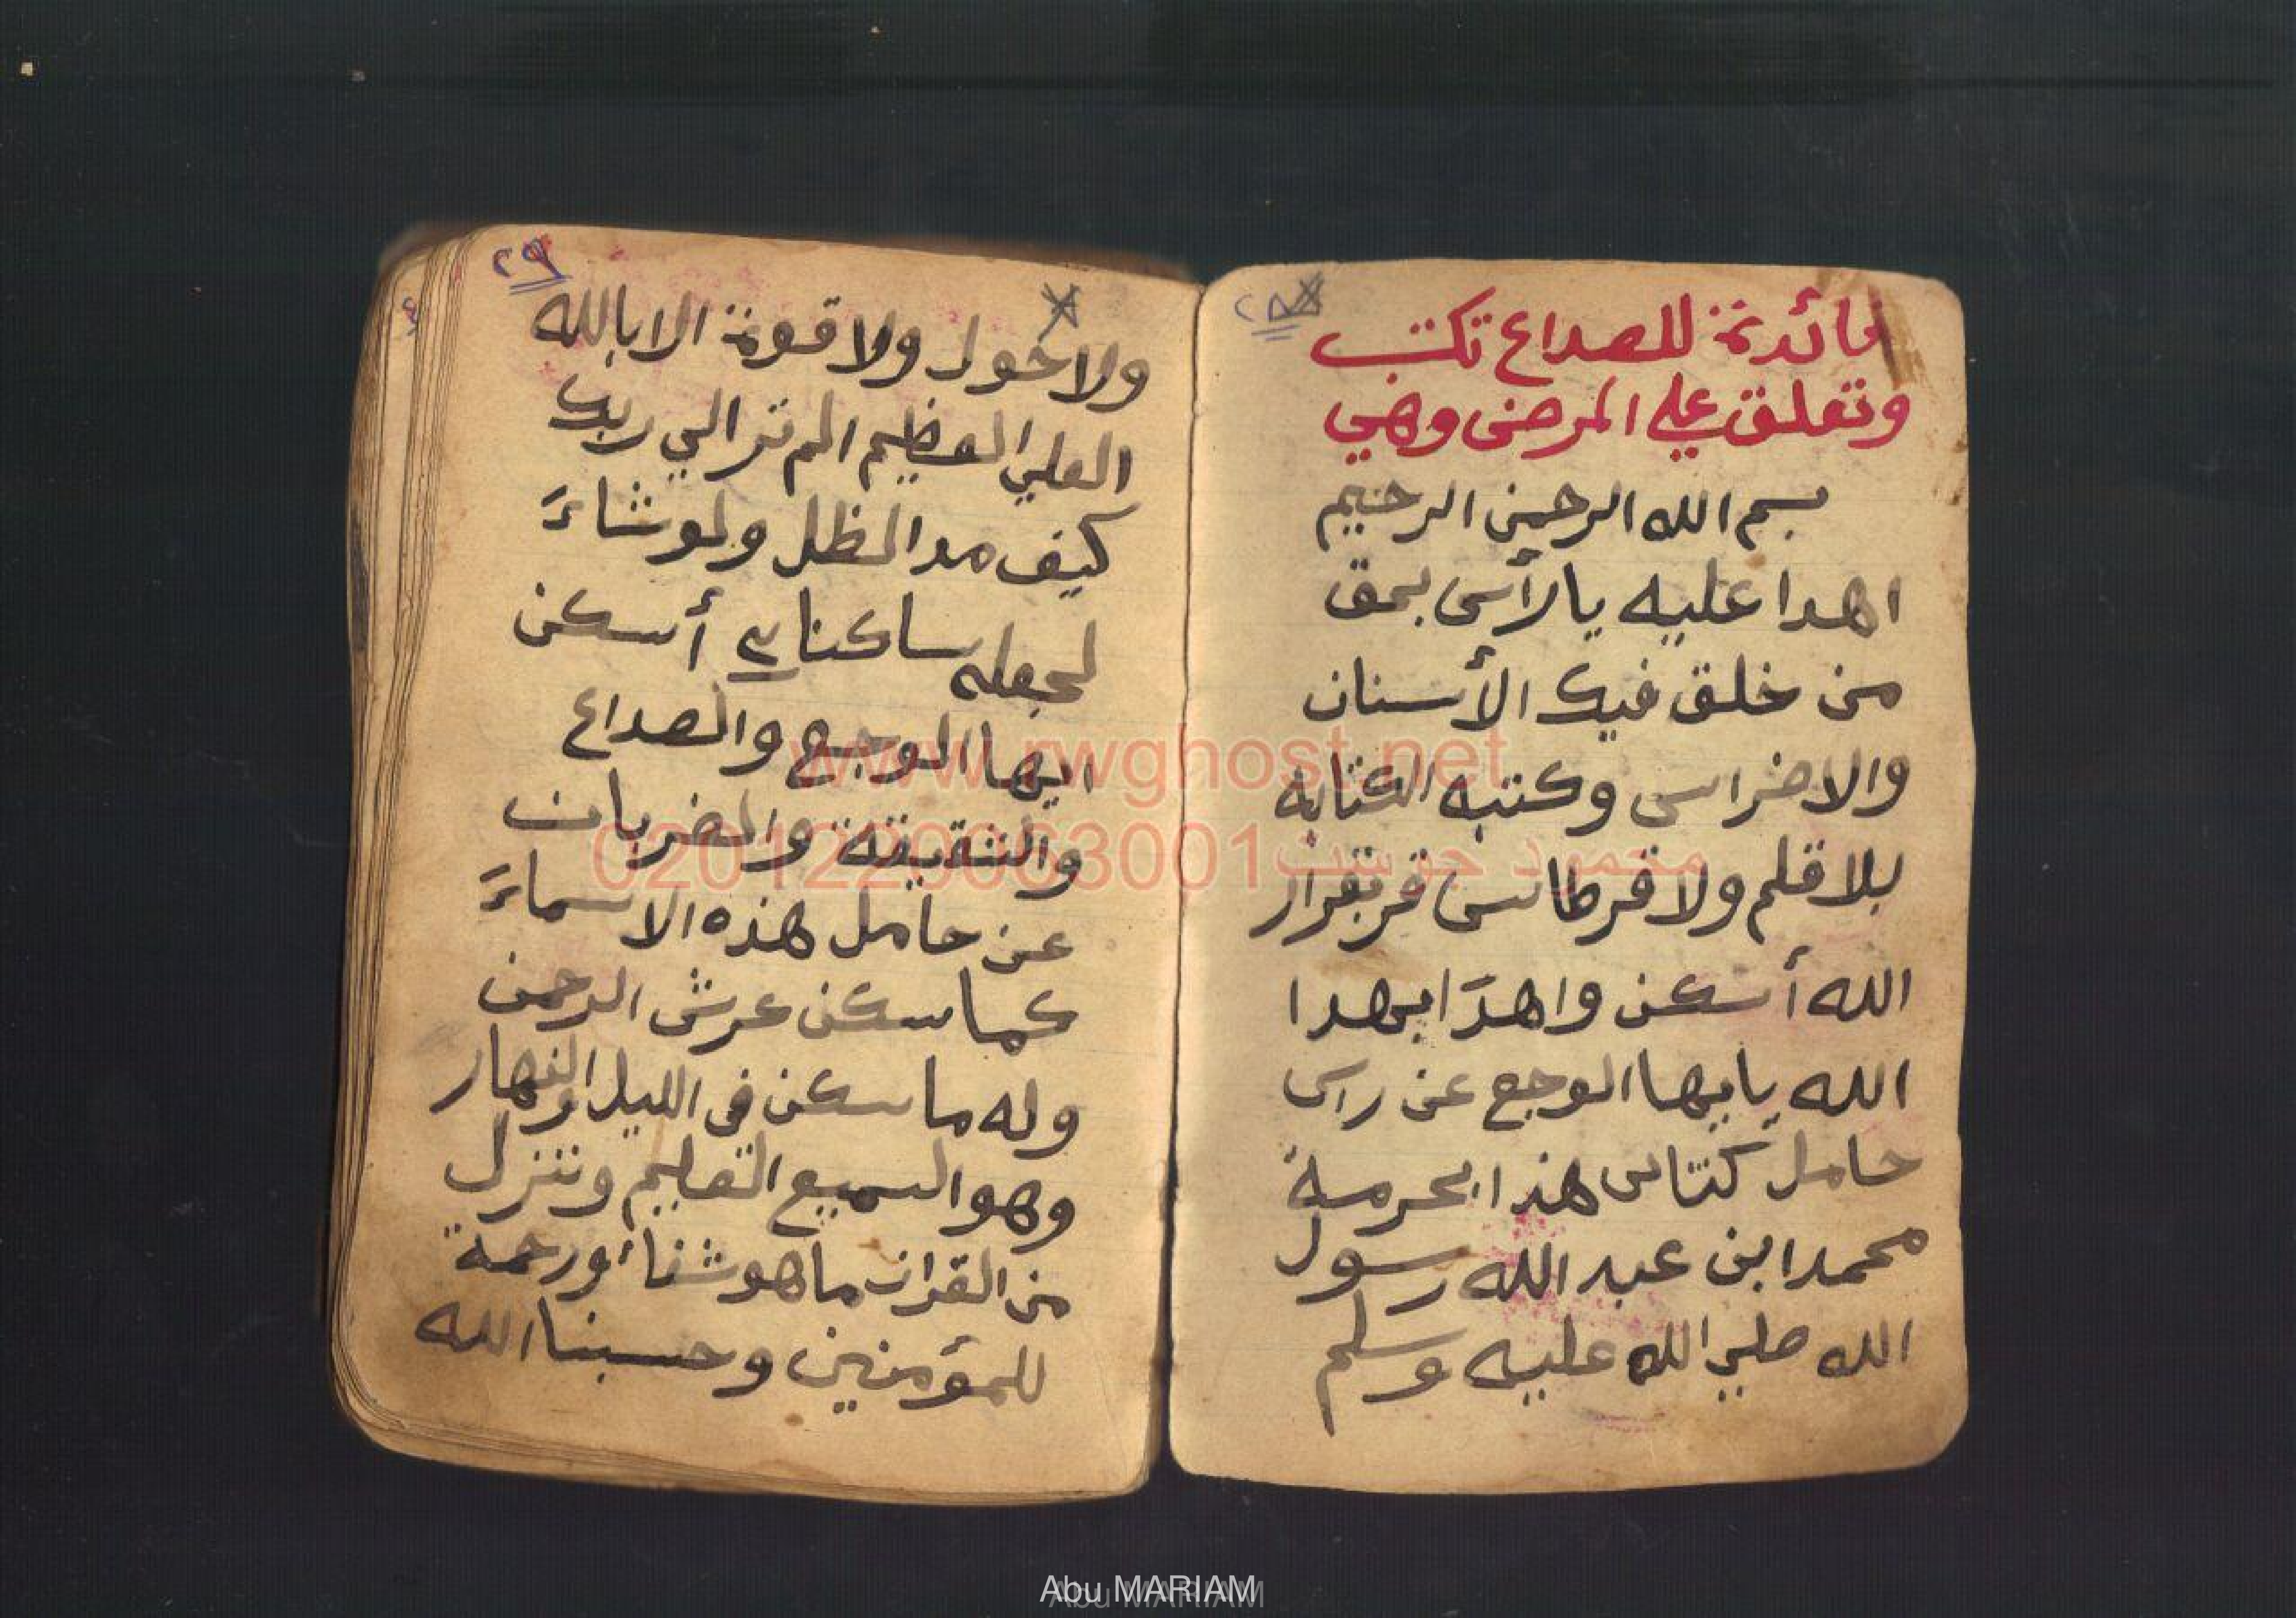 ٢٨
فائدة للصداع تكتب
وتعلق علي المرضى وهي
بسم الله الرحمن الرحيم
اهدا عليه يا رأسى بحق
من خلق فيك الأسنان
والاضراس وكتبه الكتابه
بلا قلم ولا قرطاس قر بقرار
الله أسكن واهدَا بهدا
الله يايها الوجع عن راس
حامل كتابى هذا بحرمة
محمد ابن عبد الله رسول
الله صلي الله عليه وسلم
٢٩
ولا حول ولا قوة الا بالله
العلي العظيم الم تر الي ربك
كيف مد الظل ولو شاءَ
لجعله ساكنا ٣ أسكن
ايها الوجع والصداع
والشقيقة والضربات
عن حامل هذه الاسماءَ
كما سكن عرش الرحمن
وله ما سكن فى الليل والنهار
وهو السميع العليم وننزل
من القران ما هو شفاء ورحمة
للمؤمنين وحسبنا الله
www.rwghost.net
محمود جوست 0201220063001
Abu MARIAM